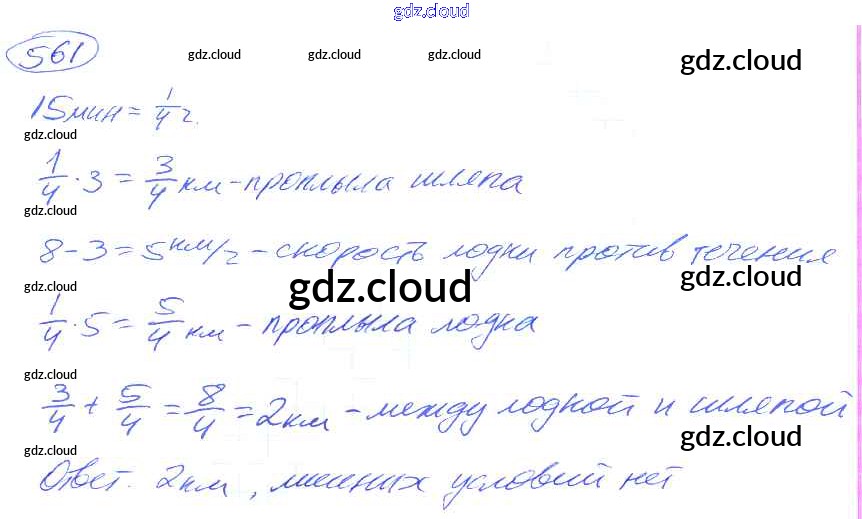 gdz.cloud
561
gdz.cloud gdz.cloud gdz.cloud gdz.cloud
15мин = 1/4 ч.
gdz.cloud
1/4 · 3 = 3/4 км - проплыла шляпа
gdz.cloud
8 - 3 = 5 км/ч - скорость лодки против течения
gdz.cloud gdz.cloud gdz.cloud
1/4 · 5 = 5/4 км - проплыла лодка
gdz.cloud
3/4 + 5/4 = 8/4 = 2км - между лодкой и шляпой
gdz.cloud gdz.cloud
Ответ. 2км, лишних условий нет